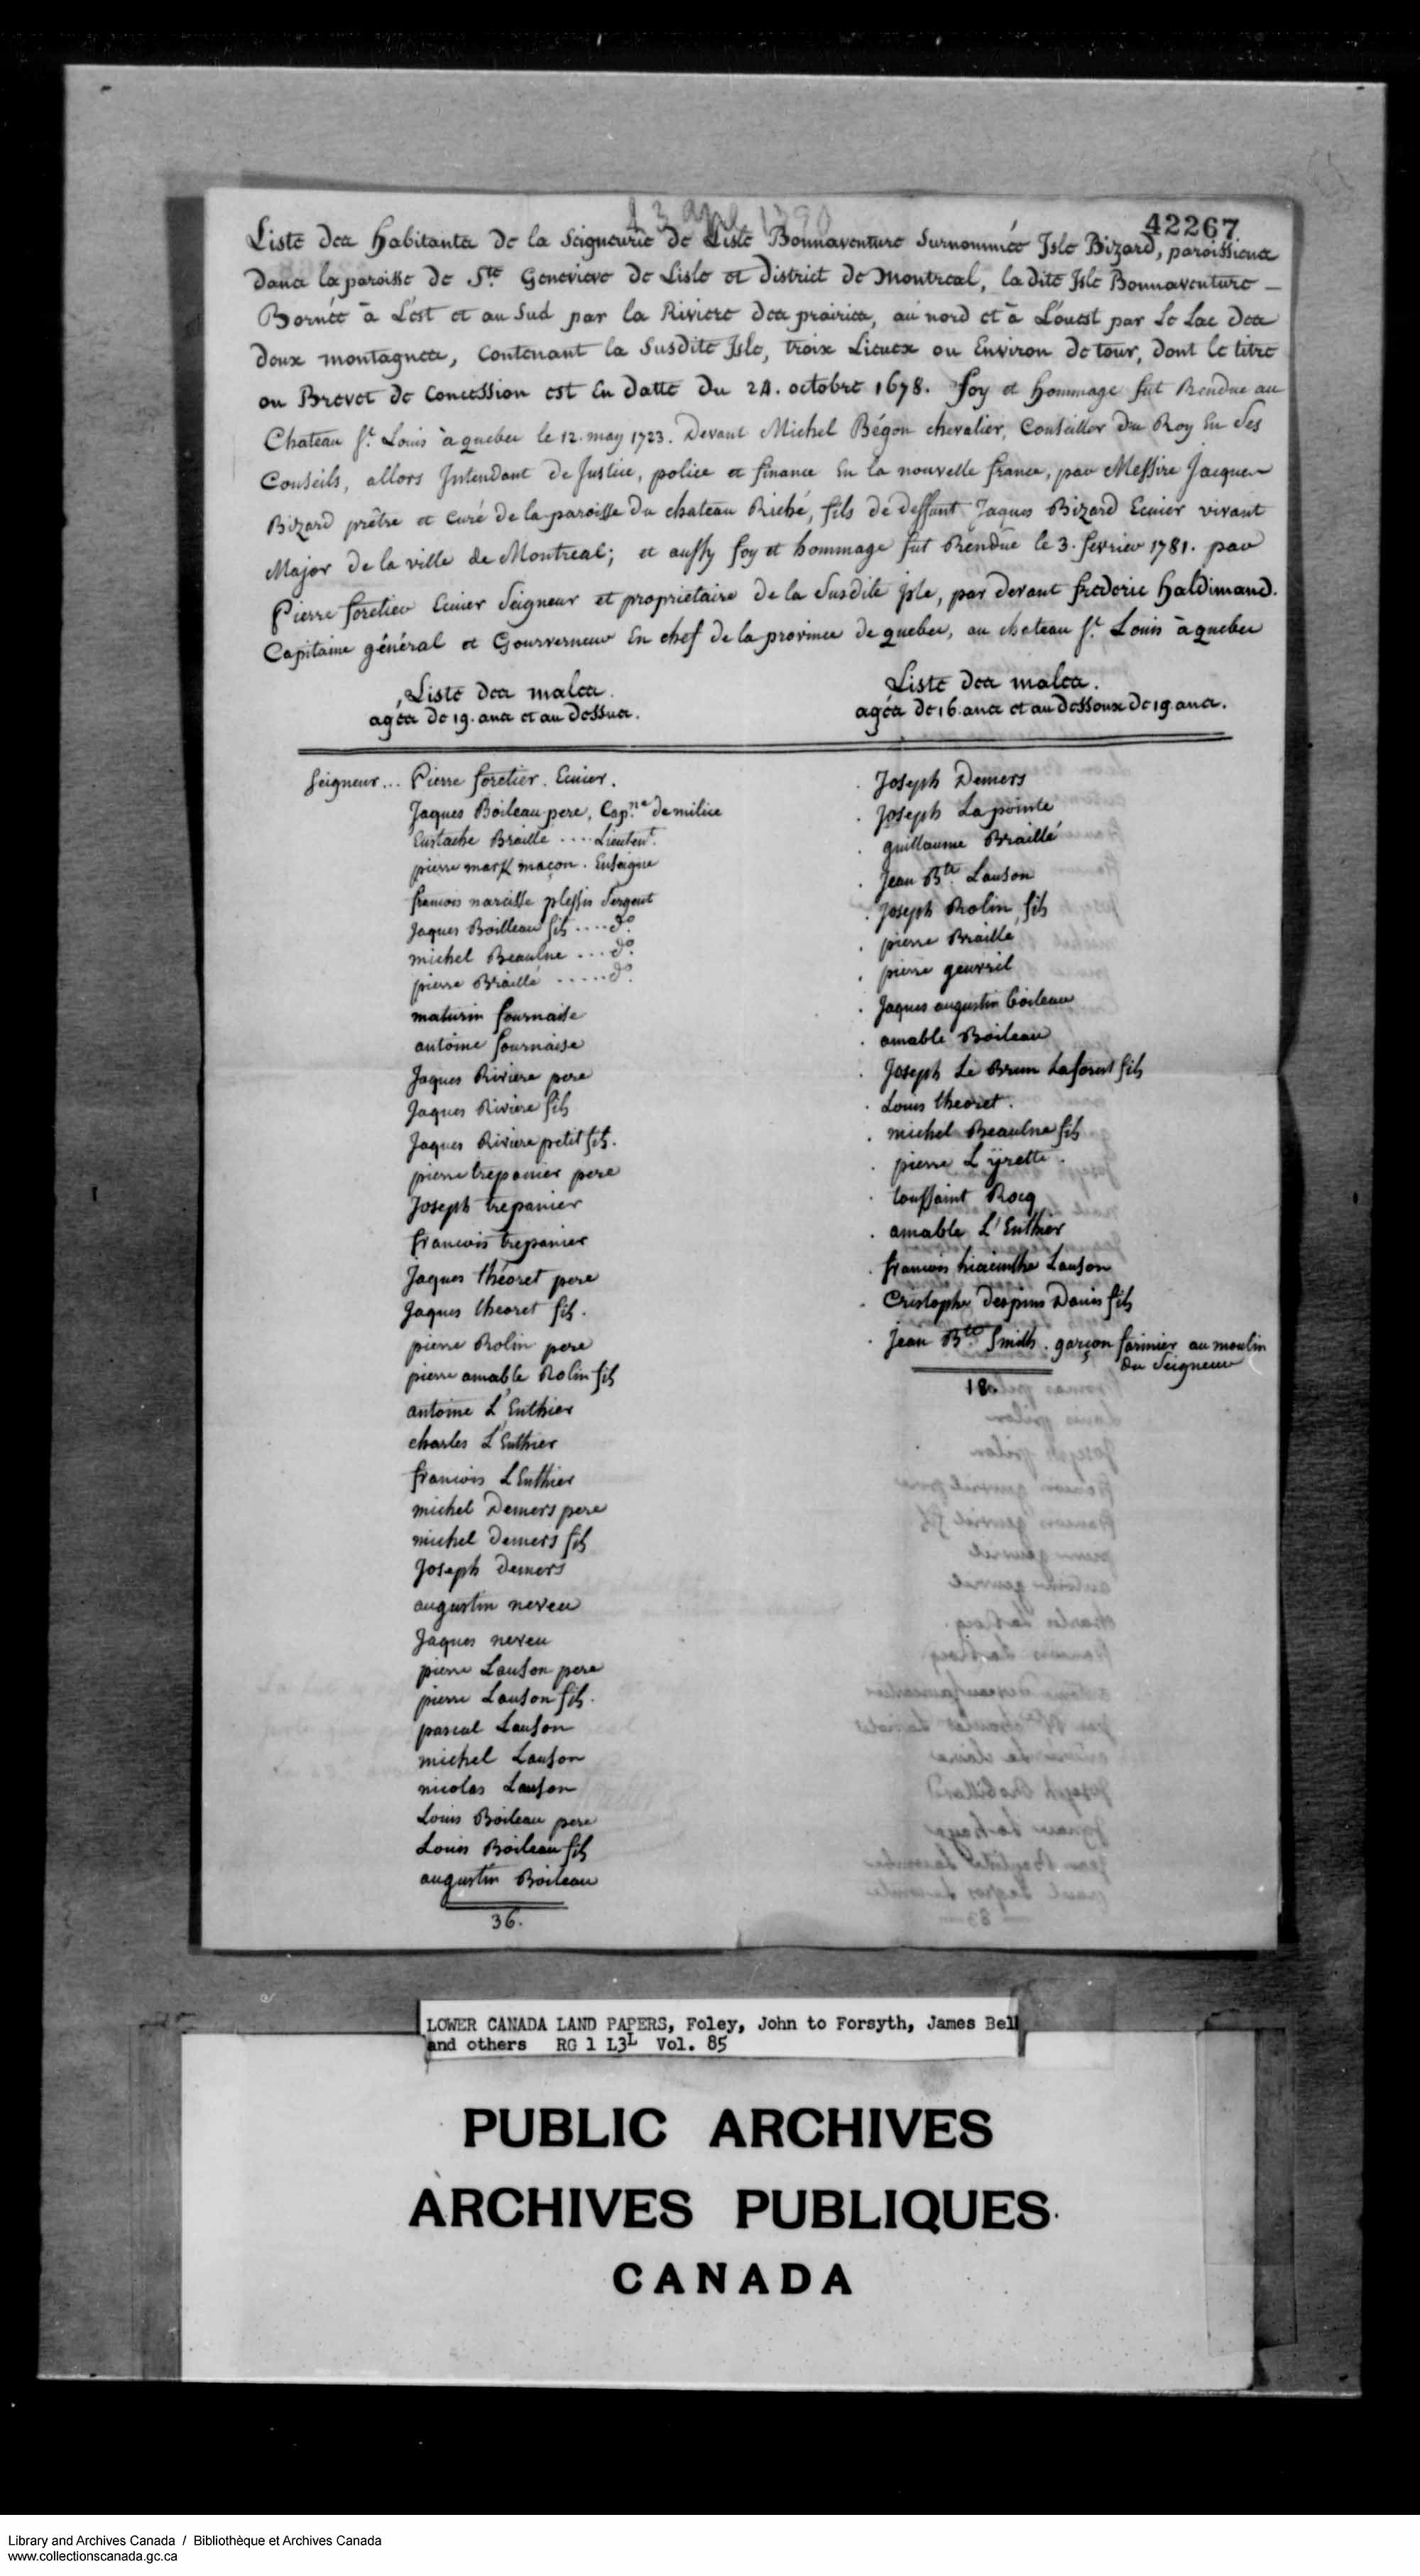 13 apl 1790
42267
Liste des habitants de la Seigneurie de Lisle Bonnaventure Surnommée Isle Bizard, paroissiens
dans la paroisse de Ste Genevieve de Lisle et District de Montreal, la dite Isle Bonnaventure —
Bornée à L'est et au Sud par la Riviere des prairies, au nord et à L'ouest par Le Lac des
deux montagnes, Contenant la Susdite Isle, troix Lieuex ou Environ de tour, dont le titre
ou Brevet de Concession est En datte du 24. octobre 1678. foy et hommage fut Rendue au
Chateau St. Louis à quebec le 12. may 1723. Devant Michel Bégon chevalier, Conseiller Du Roy En Ses
Conseils, allors Intendant de Justice, police et finance En la nouvelle france, par Messire Jacques
Bizard prêtre et Curé de la paroisse du chateau Riché, fils de deffunt Jaques Bizard Ecuier vivant
Major de la ville de Montreal; et aussy foy et hommage fut Rendüe le 3. fevrier 1781. par
Pierre foretier Ecuier Seigneur et proprietaire de la Susdite Isle, par devant frederic haldimand.
Capitaine général et Gourverneur En chef de la province de quebec, au chateau St. Louis à quebec
Liste des males.
agés de 19. ans et au dessus.
Liste des males.
agés de 16. ans et au dessoux de 19. ans.
Seigneur... Pierre foretier. Ecuier.
Jaques Boileau pere, Capne. de milice
Eustache Braille .... Lieutent.
pierre mark maçon. Enseigne
francois narcisse plessis Sergent
Jaques Boilleau fils .... do.
michel Beaulne .... do.
pierre Braillé ...... do.
maturin fournaise
antoine fournaise
Jaques Riviere pere
Jaques Riviere fils
Jaques Riviere petit fils.
pierre trepanier pere
Joseph trepanier
francois trepanier
Jaques théoret pere
Jaques theoret fils.
pierre Rolin pere
pierre amable Rolin fils
antoine L'Enthier
charles L'Enthier
francois L'Enthier
michel Demers pere
michel Demers fils
Joseph Demers
augustin neveu
Jaques neveu
pierre Lauson pere
pierre Lauson fils.
pascal Lauson
michel Lauson
nicolas Lauson
Louis Boileau pere
Louis Boileau fils
augustin Boileau
36.
Joseph Demers
Joseph Lapointe
guillaume Braillé
Jean Bte. Lauson
Joseph Rolin fils
pierre Braille
pierre geuvril
Jaques augustin boileau
amable Boileau
Joseph Le Brun Laforest fils
Louis theoret.
michel Beaulne fils
pierre Lÿrette.
toussaint Rocq
amable L'Enthier
francois hiacinthe Lauson
Cristophe despins Danis fils
jean Bte Smith. garçon farinier au moulin
du Seigneur
18.
LOWER CANADA LAND PAPERS, Foley, John to Forsyth, James Bell
and others RG 1 L3L Vol. 85
PUBLIC ARCHIVES
ARCHIVES PUBLIQUES
CANADA
Library and Archives Canada / Bibliothèque et Archives Canada
www.collectionscanada.gc.ca